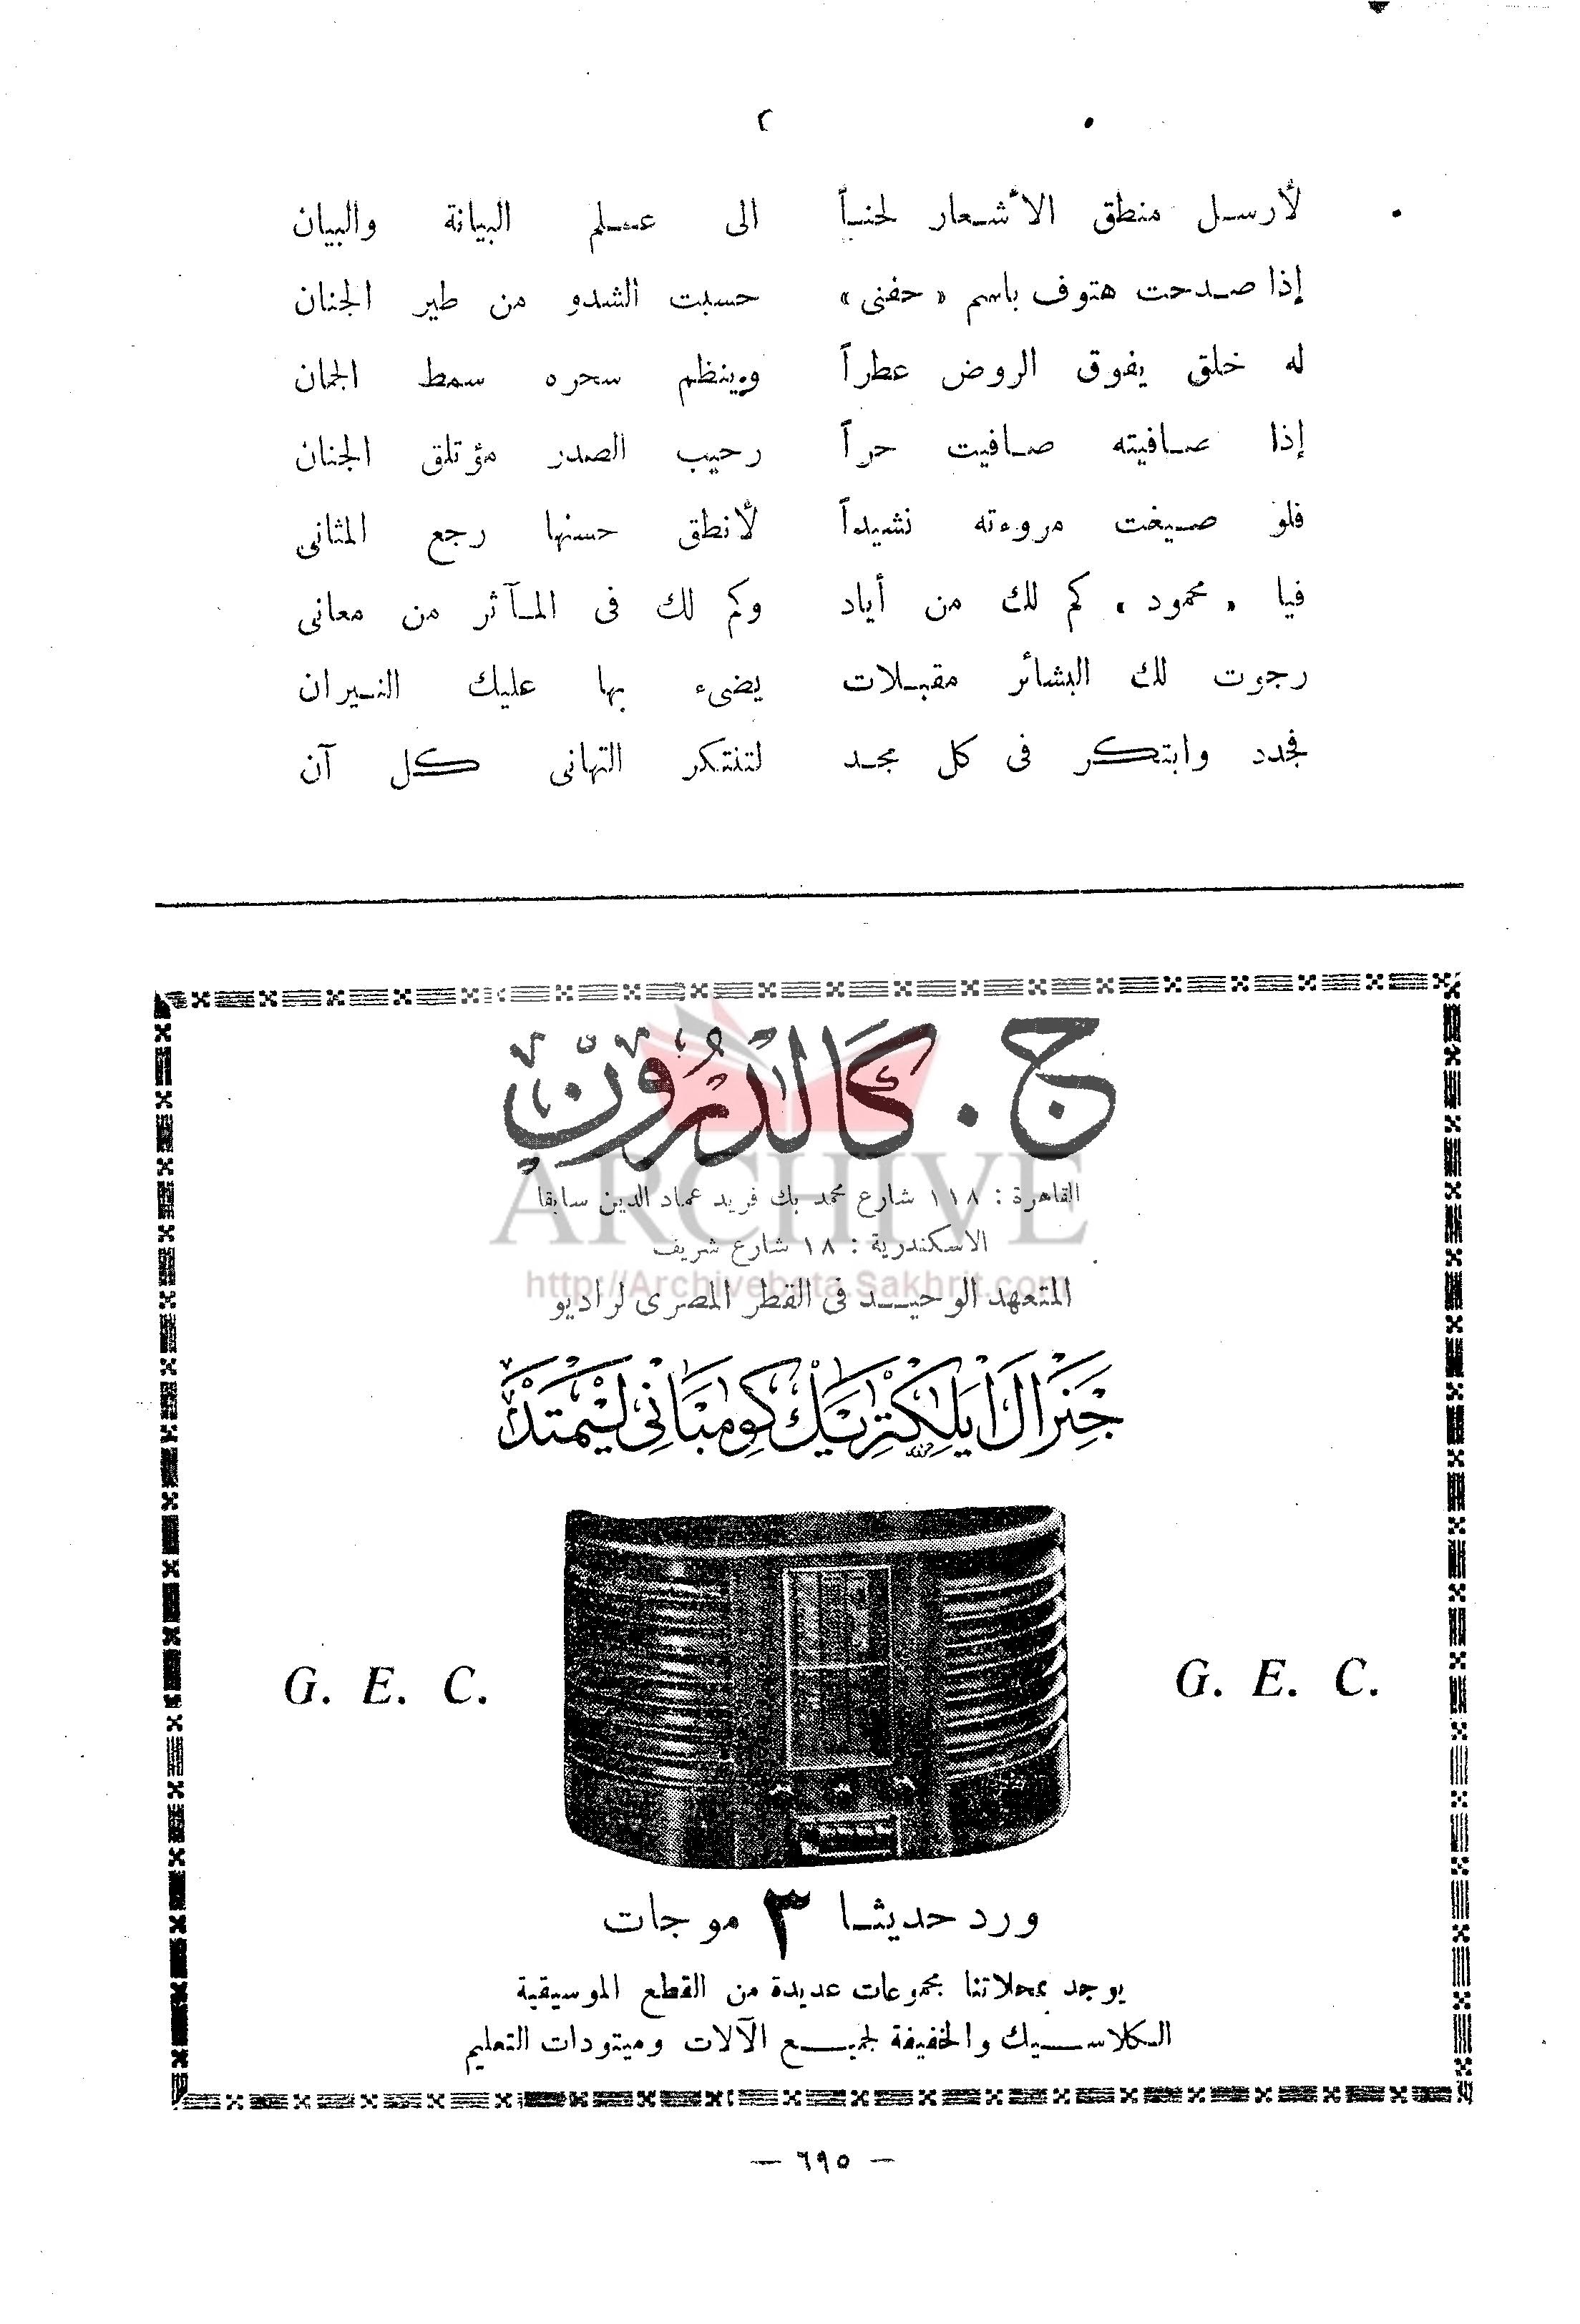 ٢
لأرسل منطق الأشعار لحناً الى علم البيانة والبيان
إذا صدحت هتوف باسم «حفنى» حسبت الشدو من طير الجنان
له خلق يفوق الروض عطراً وينظم سحره سمط الجمان
إذا صافيته صافيت حراً رحيب الصدر مؤتلق الجنان
فلو صيغت مروءته نشيداً لأنطق حسنها رجع المثانى
فيا «محمود» كم لك من أياد وكم لك فى المآثر من معانى
رجوت لك البشائر مقبلات يضىء بها عليك النيران
فجدد وابتكر فى كل مجد لتبتكر التهانى كل آن
ج. كالدرون
القاهرة : ١١٨ شارع محمد بك فريد عماد الدين سابقا
الاسكندرية : ١٨ شارع شريف
المتعهد الوحيد فى القطر المصرى لراديو
جنرال ايلكتريك كومبانى ليمتد
G. E. C.
G. E. C.
ورد حديثا ٣ موجات
يوجد بمحلاتنا مجموعات عديدة من القطع الموسيقية
الكلاسيك والخفيفة لجميع الآلات وميتودات التعليم
— ٦٩٥ —
ARCHIVE
http://Archivebeta.Sakhrit.com